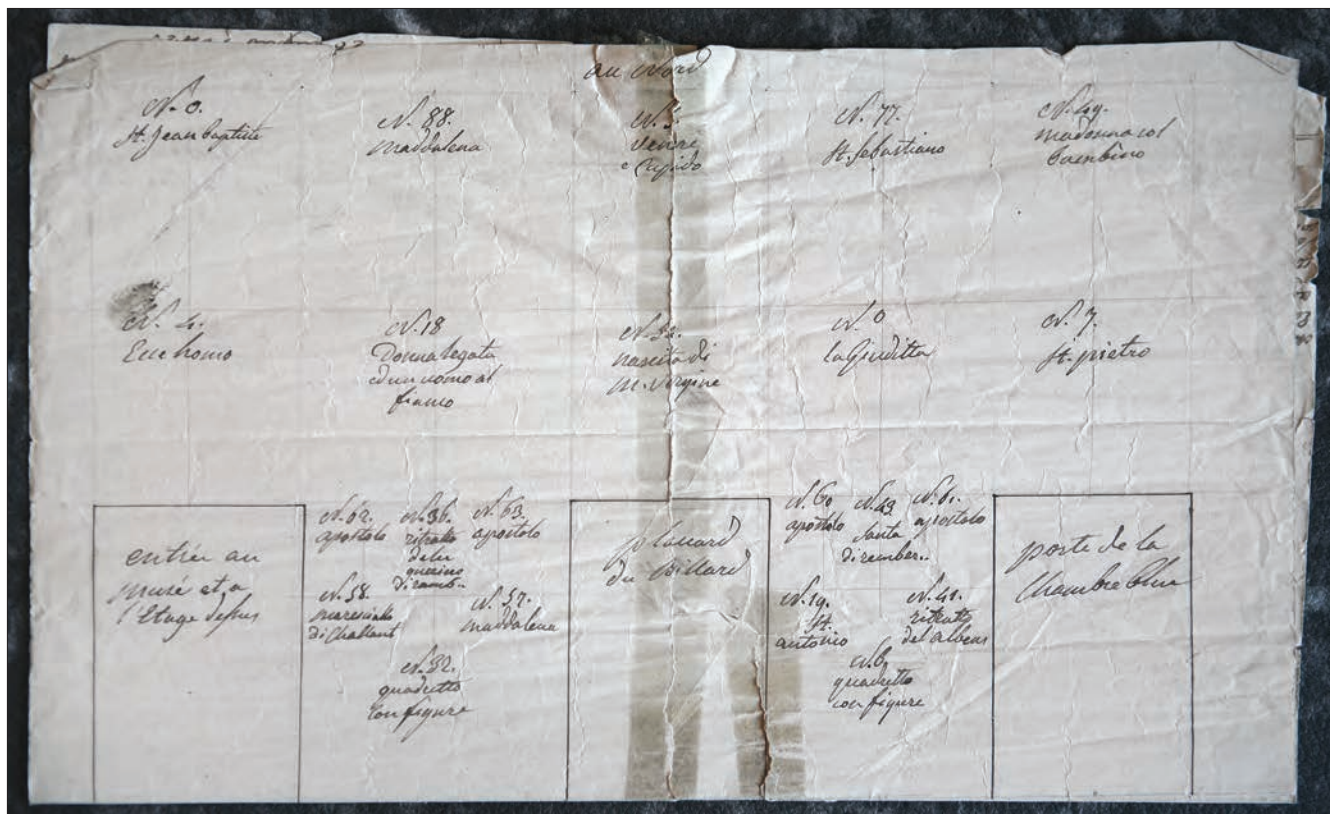 au Nord
N. 0.
St. Jean baptiste
N. 88.
Maddalena
N. 5.
venere
e Cupido
N. 77.
St. Sebastiano
N. 49.
Madonna col
bambino
N. 4.
Ecce homo
N. 18
Donna legata
ed un uomo al
fianco
N. 32.
nascita di
M. Vergine
N. 0
la Giuditta
N. 7.
St. pietro
entrée au
musé et a
l'Etage desus
N. 62.
apostolo
N. 36.
ritratto
del
guerino
di remb..
N. 63.
apostolo
N. 58.
maresciallo
di Challant
N. 57.
Maddalena
N. 32.
quadretto
con figure
placard
du Billard
N. 60
apostolo
N. 43
Santa
di rember..
N. 61.
apostolo
N. 19.
St.
antonio
N. 41.
ritratto
del
N. 6.
quadretto
con figure
porte de la
Chambre bleu